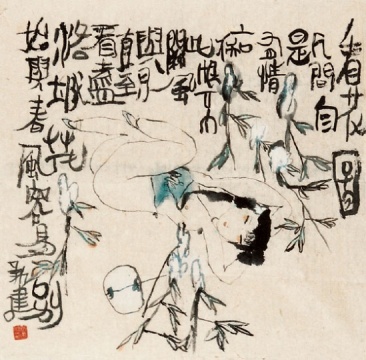 看花図
人間自
是
有情
痴
此恨不
關風
與月
直至
看盡
洛城花
始與春
風容易別
新建